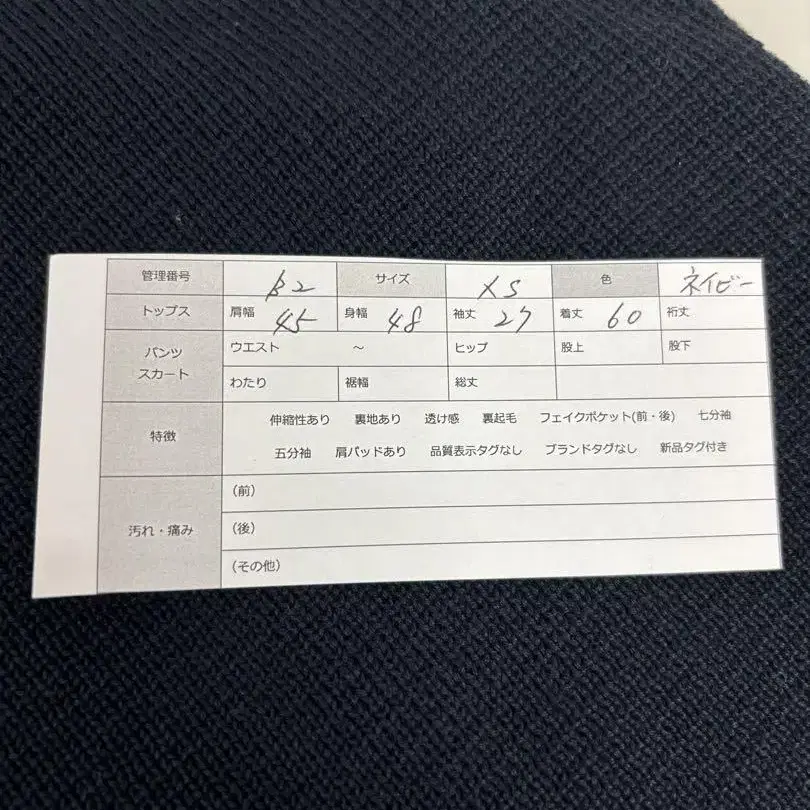 管理番号 B2 サイズ XS 色 ネイビー
トップス 肩幅 45 身幅 48 袖丈 27 着丈 60 裄丈
パンツ スカート ウエスト ～ ヒップ 股上 股下
わたり 裾幅 総丈
特徴 伸縮性あり 裏地あり 透け感 裏起毛 フェイクポケット(前・後) 七分袖
五分袖 肩パッドあり 品質表示タグなし ブランドタグなし 新品タグ付き
汚れ・痛み (前)
(後)
(その他)